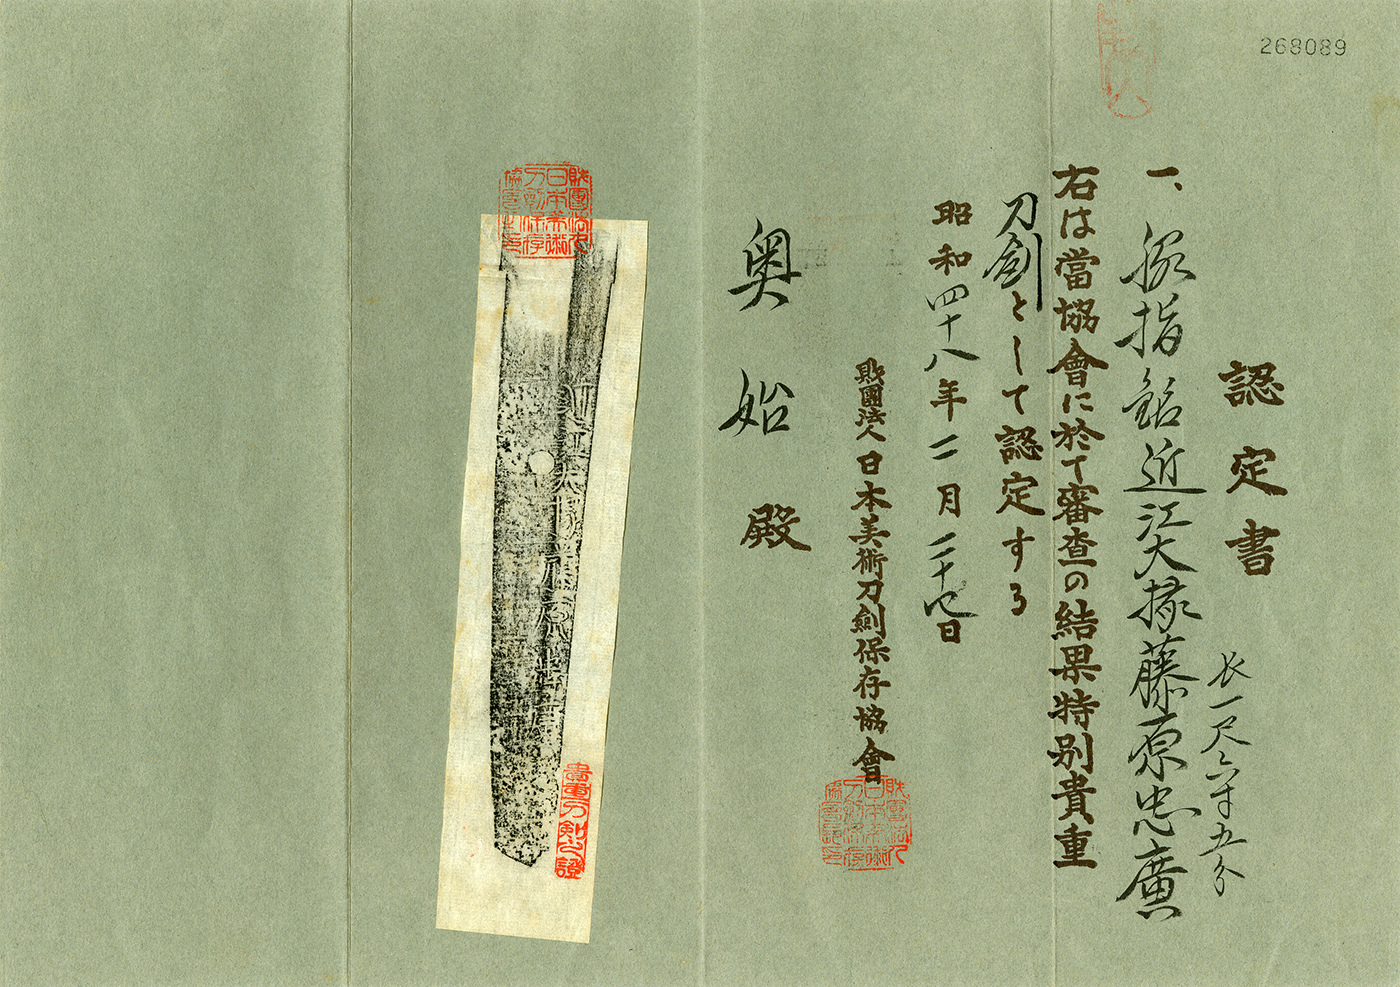 268089
認定書
長一尺六寸五分
一、脇指 銘 近江大掾藤原忠廣
右は當協會に於て審査の結果特別貴重
刀劍として認定する
昭和四十八年二月二十七日
財團法人日本美術刀劍保存協會
財團法人日本美術刀劍保存協會長之印
奥始殿
財團法人日本美術刀劍保存協會長之印
近江大掾藤原忠廣
貴重刀剣之證